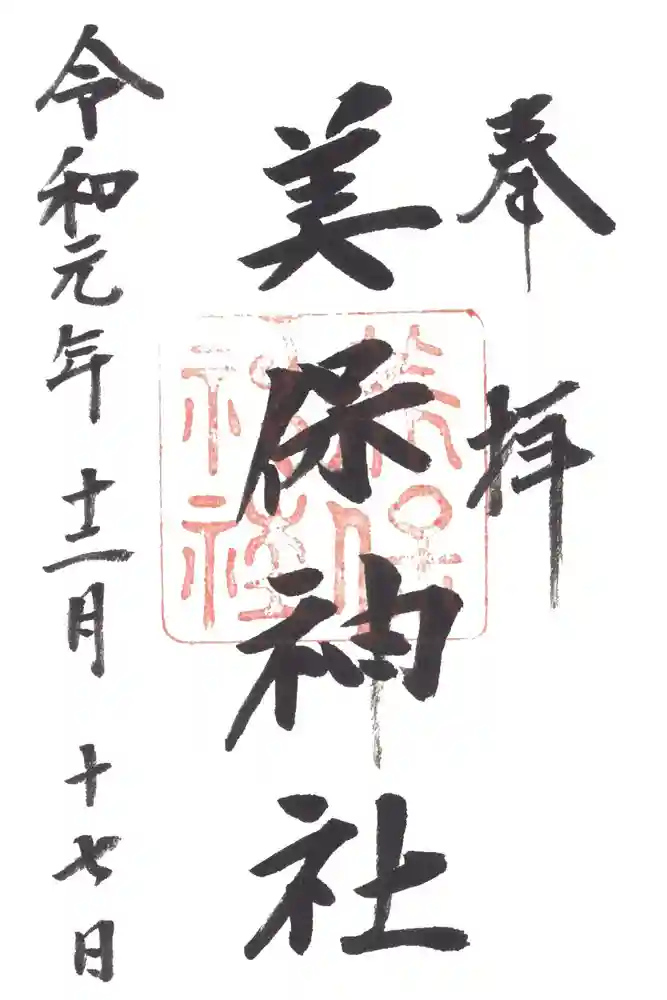 奉拝
美保神社
令和元年十二月十七日
美保
神社